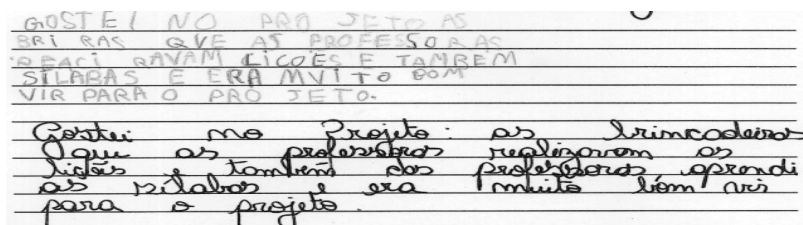 GOSTEI NO PROJETO AS
BRI RAS QVE AS PROFESSORAS
REACI RAVAM LICOES E TAMBEM
SILABAS E ERA MVITO BOM
VIR PARA O PROJETO.
Gostei no Projeto: as brincadeiras
que as professoras realizavam as
lições e também das professoras aprendi
as sílabas e era muito bom vir
para o projeto.